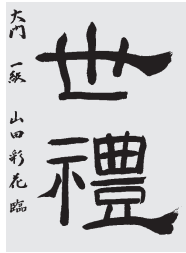 世禮
大門 一級 山田彩花臨